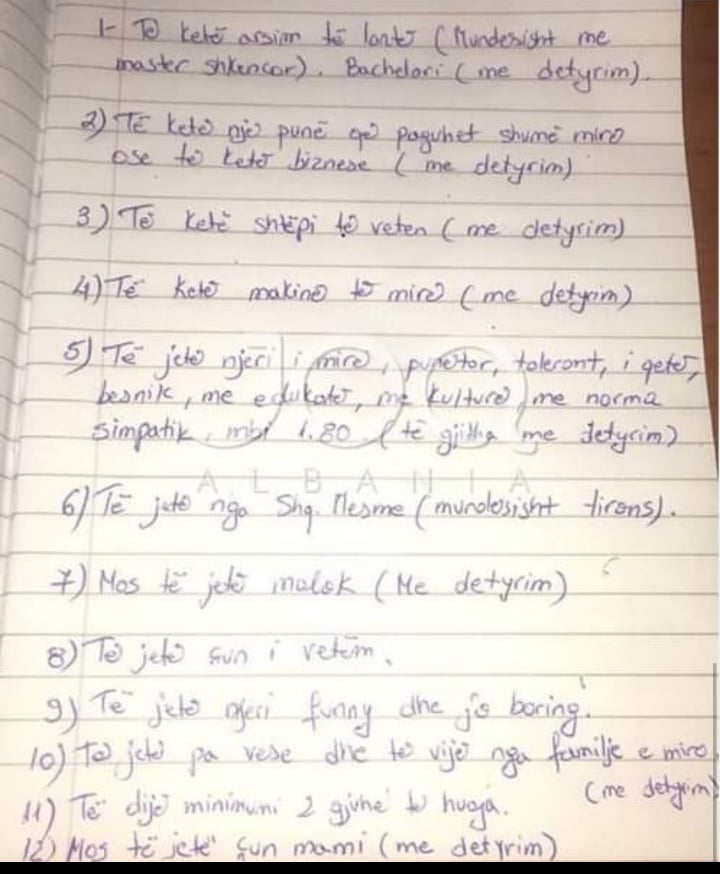 1- Të ketë arsim të lartë (Mundësisht me
master shkencor). Bachelori (me detyrim).
2) Të ketë një punë që paguhet shumë mirë
ose të ketë biznese (me detyrim)
3) Të ketë shtëpi të veten (me detyrim)
4) Të ketë makinë të mirë (me detyrim)
5) Të jetë njëri i mirë, punëtor, tolerant, i qetë,
besnik, me edukatë, me kulturë, me norma
simpatik, mbi 1.80 (të gjitha me detyrim)
ALBANIA
6) Të jetë nga Shq. Mesme (mundësisht tirons).
7) Mos të jetë malok (Me detyrim)
8) Të jetë çun i vetëm.
9) Të jetë njeri funny dhe jo boring.
10) Të jetë pa vese dhe të vijë nga familje e mirë
(me detyrim)
11) Të dijë minimumi 2 gjuhë të huaja.
12) Mos të jetë çun mami (me detyrim)